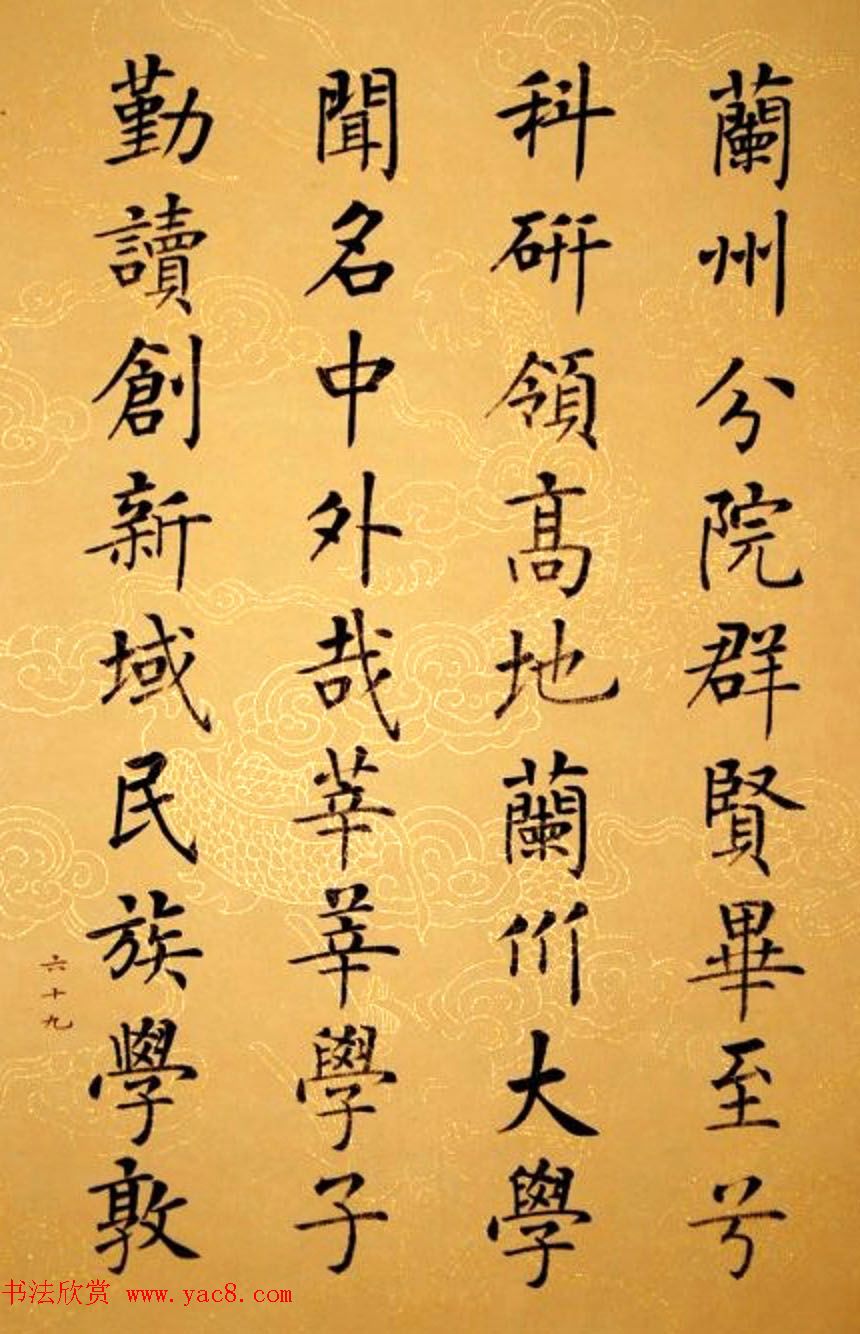 蘭州分院群賢畢至兮
科研領高地蘭州大學
聞名中外哉莘莘學子
勤讀創新域民族學敦
六十九
书法欣赏 www.yac8.com